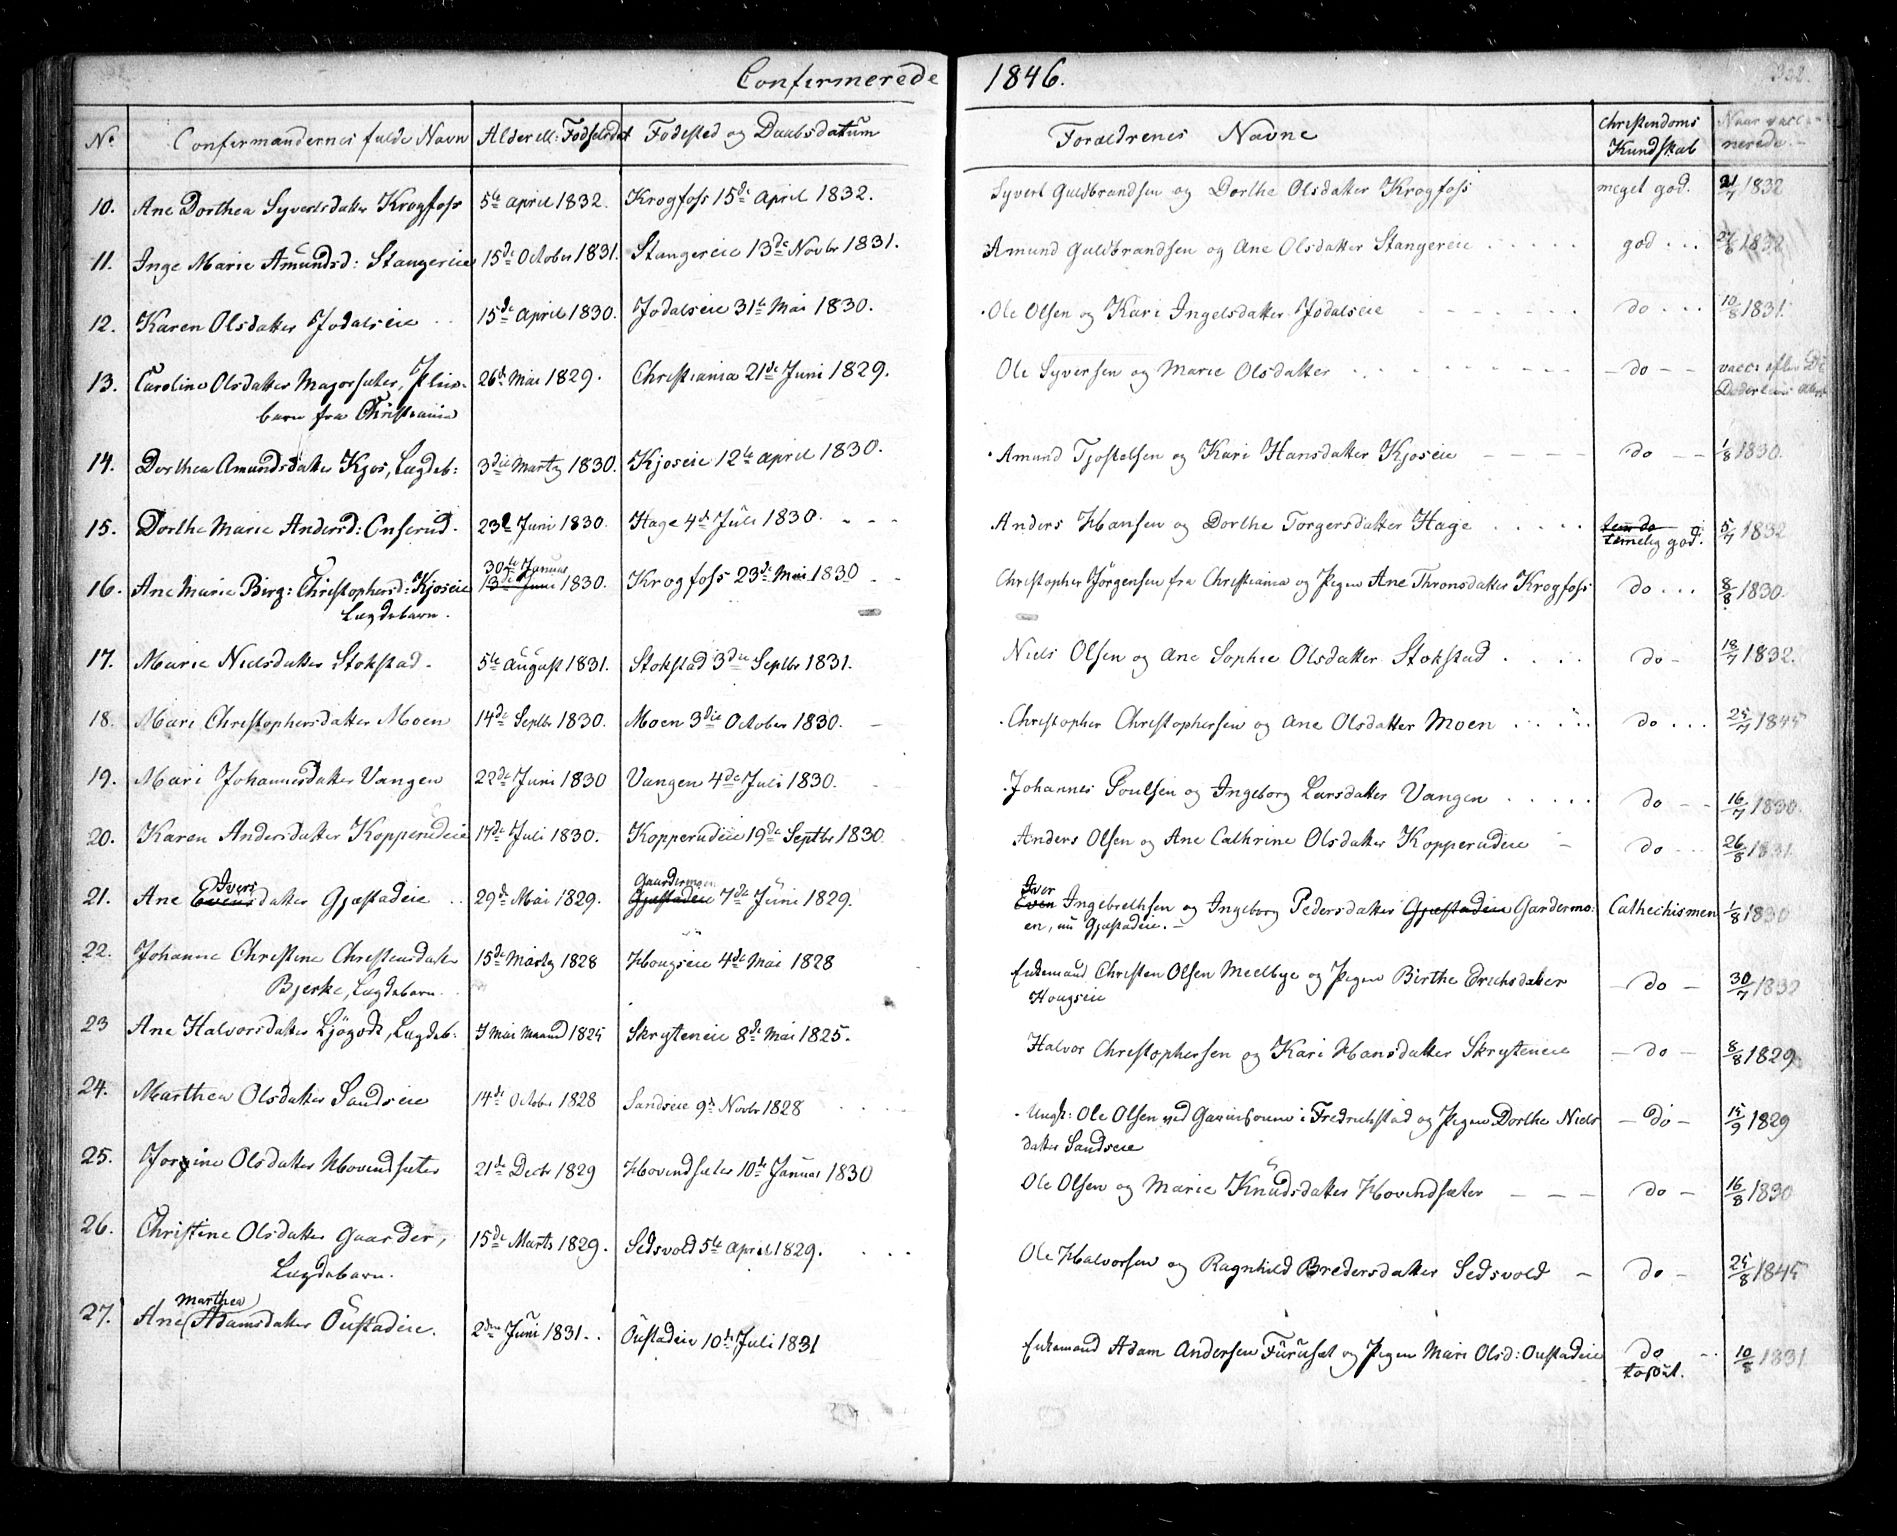 Confirmerede 1846.
No Confirmandernes fulde Navn Alder ell: Fødselsdat Fødested og Daabsdatum Forældrenes Navne Christendoms Kundskab Naar vaccinerede.
10. Ane Dorthea Syvertsdatter Krogfoss 5te April 1832. Krogfoss 15de April 1832. Syvert Guldbrandsen og Dorthe Olsdatter Krogfoss meget god. 21/7 1832
11. Inge Marie Amundsd: Stangereie 15de October 1831. Stangereie 13de Novbr 1831. Amund Guldbrandsen og Ane Olsdatter Stangereie god 27/8 1832
12. Karen Olsdatter Jødalseie 15de April 1830. Jødalseie 31te Mai 1830. Ole Olsen og Kari Ingelsdatter Jødalseie do 10/8 1831.
13. Caroline Olsdatter Magorsæter, Pleie- 26de Mai 1829. Christiania 21de Juni 1829. Ole Syversen og Marie Olsdatter do vacc: efter Dr
barn fra Christiania
14. Dorthea Amundsdatter Kjos, Lægdeb: 3die Martz 1830. Kjoseie 12te April 1830. Amund Tjostolsen og Kari Hansdatter Kjoseie do 1/8 1830.
15. Dorthe Marie Andersd: Onserud. 23de Juni 1830. Hage 4de Juli 1830. Anders Hansen og Dorthe Torgersdatter Hage tem do 5/7 1832
temelig god.
30te Januar
16. Ane Marie Birg: Christophersd: Kjoseie 13de Juni 1830. Krogfoss 23de Mai 1830 Christopher Jørgensen fra Christiania og Pigen Ane Thronsdatter Krogfoss do 8/8 1830.
Lægdebarn.
17. Marie Nielsdatter Stokstad. 5te August 1831. Stokstad 3die Septbr 1831. Niels Olsen og Ane Sophie Olsdatter Stokstad do 18/7 1832.
18. Mari Christophersdatter Moen 14de Septbr 1830. Moen 3die October 1830. Christopher Christophersen og Ane Olsdatter Moen do 25/7 1845
19. Mari Johannesdatter Vangen 22de Juni 1830 Vangen 4de Juli 1830. Johannes Poulsen og Ingeborg Larsdatter Vangen do 16/7 1830.
20. Karen Andersdatter Kopperudeie 17de Juli 1830. Kopperudeie 19de Septbr 1830. Anders Olsen og Ane Cathrine Olsdatter Kopperudeie do 26/8 1831.
Ivers Gaardermoen Iver
21. Ane Evensdatter Gjæstadeie 29de Mai 1829. Gjæstadeie 7de Juni 1829. Even Ingebrethsen og Ingeborg Pedersdatter Gjæstadeie Gardermo: Cathechismen 1/8 1830
en, nu Gjæstadeie.
22. Johanne Christine Christensdatter 15de Martz 1828 Hougseie 4de Mai 1828 Enkemand Christen Olsen Meelbye og Pigen Birthe Erichsdatter do 30/7 1832
Bjerke, Lægdebarn. Hougseie
23 Ane Halvorsdatter Ljøgodt, Lægdeb. I Mai Maaned 1825 Skryteneie 8de Mai 1825. Halvor Christophersen og Kari Hansdatter Skryteneie do 8/8 1829
24. Marthea Olsdatter Sandseie 14de October 1828 Sandseie 9de Novbr 1828 Ungk: Ole Olsen ved Garnisonen i Fredrichstad og Pigen Dorthe Niels do 15/9 1829
datter Sandseie
25. Jorgine Olsdatter Hovindsæter 21de Decbr 1829 Hovindsæter 10de Januar 1830 Ole Olsen og Marie Knudsdatter Hovindsæter do 16/8 1830
26. Christine Olsdatter Gaarder, 15de Marts 1829. Sedsvold 5te April 1829. Ole Halvorsen og Ragnhild Bredersdatter Sedsvold do 25/8 1845
Lægdebarn.
Marthea
27. Ane Adamsdatter Oustadeie. 2den Juni 1831. Oustadeie 10de Juli 1831 Enkemand Adam Andersen Furuset og Pigen Mari Olsd: Oustadeie do 10/8 1831